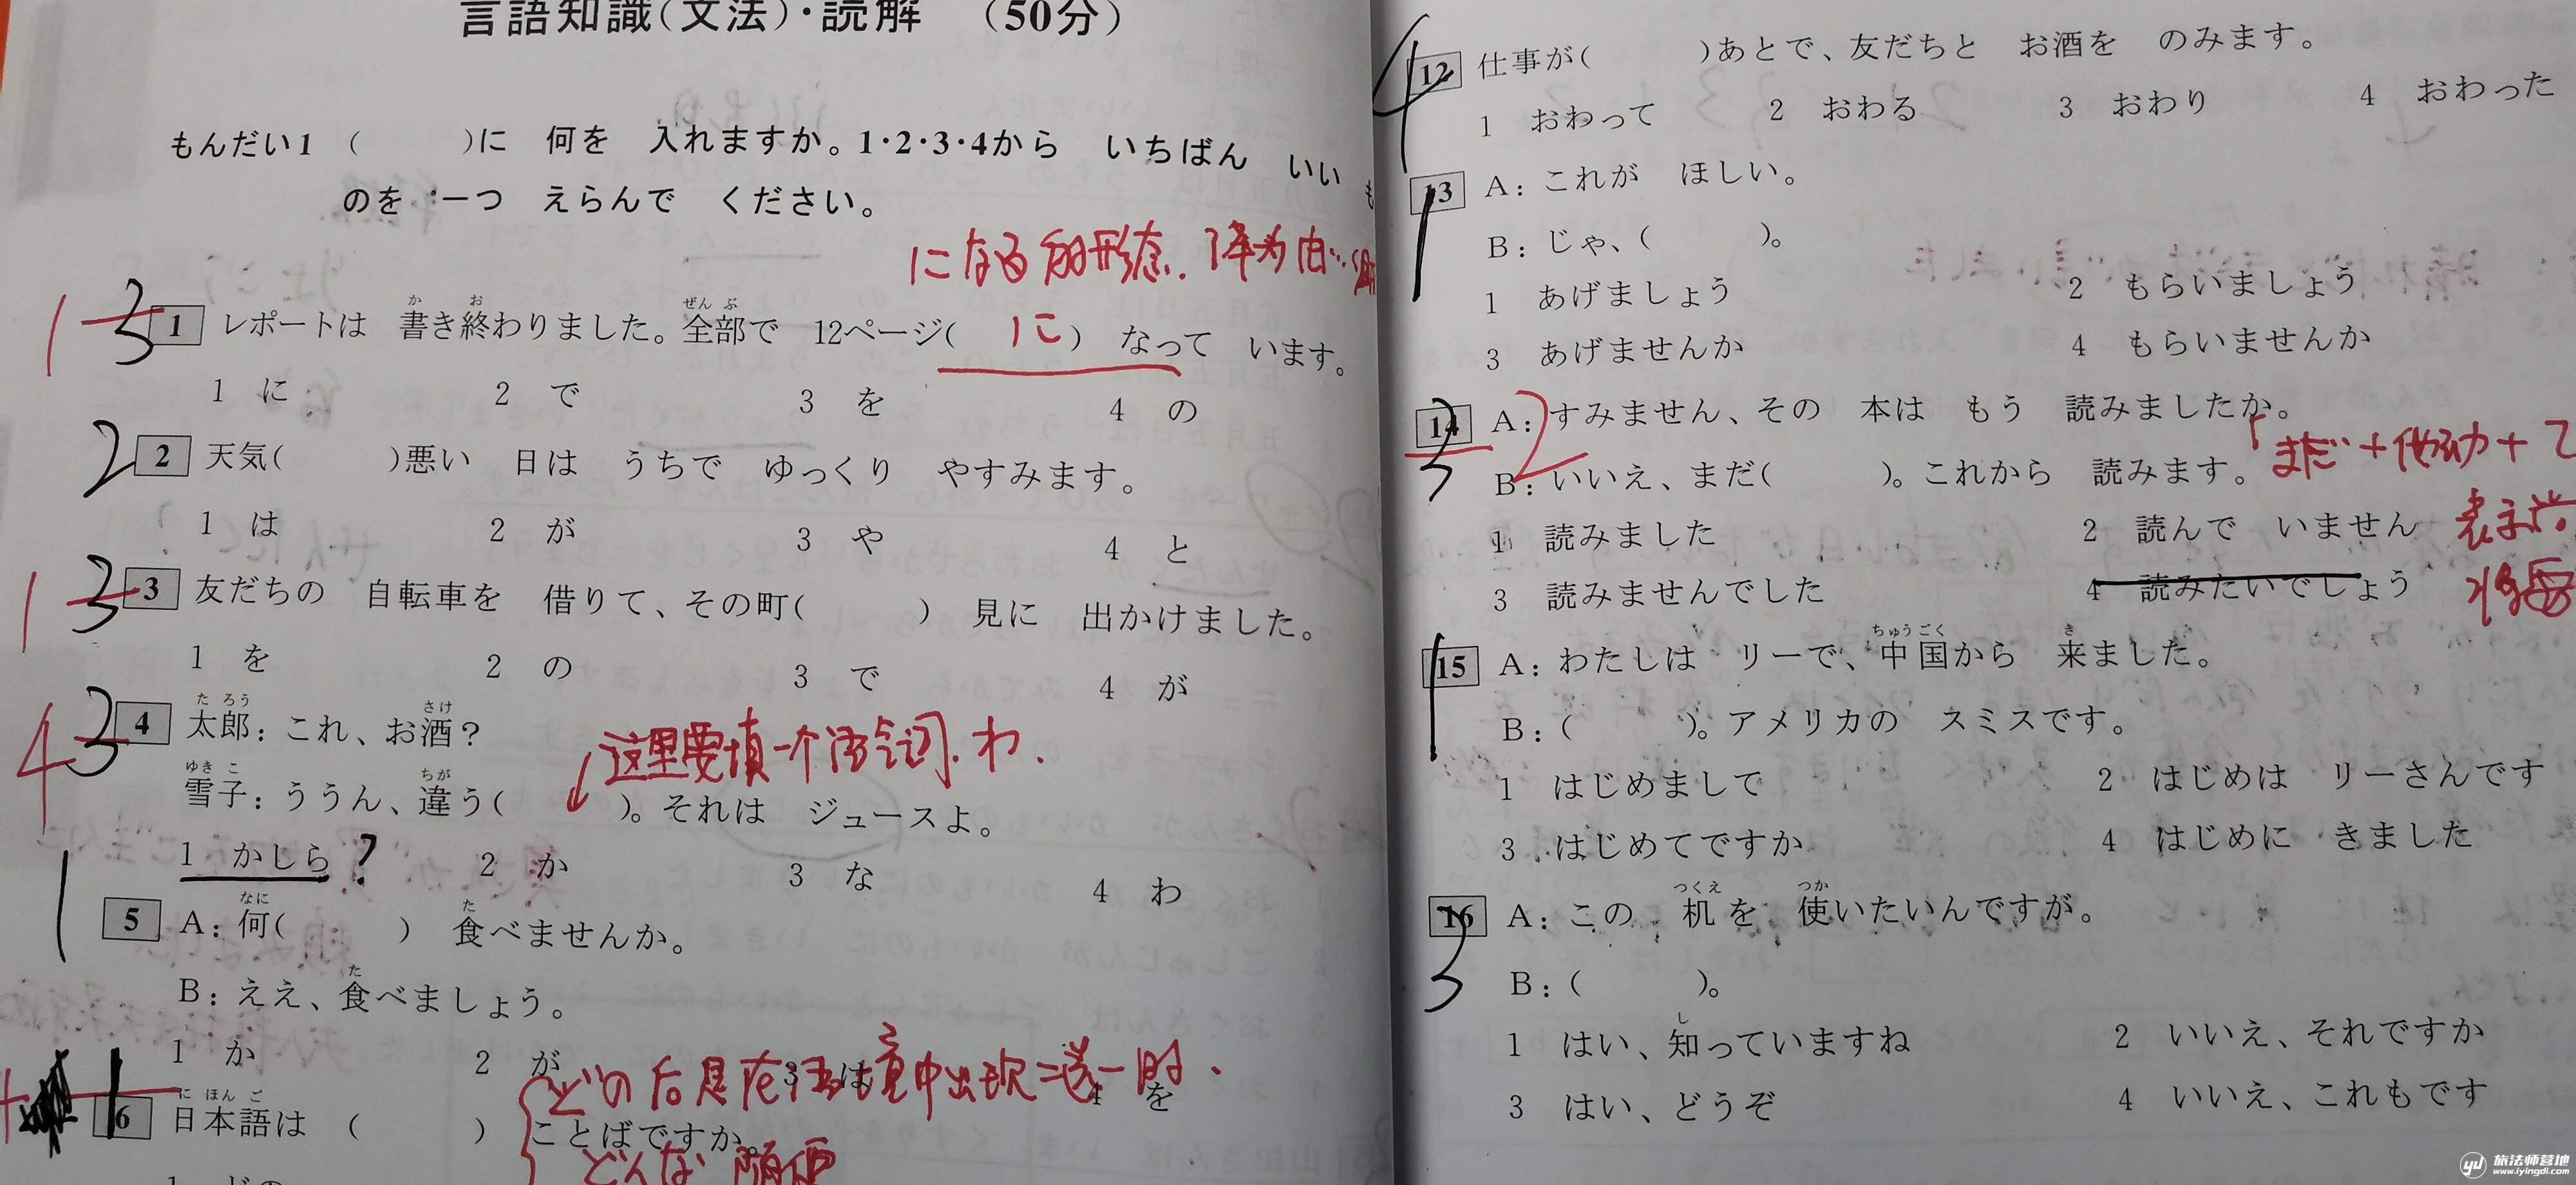 言語知識(文法)・読解 (50分)
もんだい1 ( )に 何を 入れますか。1・2・3・4から いちばん いい も
のを 一つ えらんで ください。
になる的形态.
1 3 1 レポートは 書き終わりました。全部で 12ページ( に ) なって います。
1 に 2 で 3 を 4 の
2 2 天気( )悪い 日は うちで ゆっくり やすみます。
1 は 2 が 3 や 4 と
1 3 3 友だちの 自転車を 借りて、その町( ) 見に 出かけました。
1 を 2 の 3 で 4 が
4 3 4 太郎：これ、お酒？
这里要填一个语气词.わ.
雪子：ううん、違う( )。それは ジュースよ。
1 かしら ? 2 か 3 な 4 わ
1 5 A：何( ) 食べませんか。
B：ええ、食べましょう。
1 か 2 が 3 は 4 を
どの后是在语境中出现二选一时.
1 6 日本語は ( ) ことばですか。
どんな
4 12 仕事が( )あとで、友だちと お酒を のみます。
1 おわって 2 おわる 3 おわり 4 おわった
1 13 A：これが ほしい。
B：じゃ、( )。
1 あげましょう 2 もらいましょう
3 あげませんか 4 もらいませんか
3 14 2 A：すみません、その 本は もう 読みましたか。
まだ+他动+て
B：いいえ、まだ( )。これから 読みます。
1 読みました 2 読んで いません
表示尚
3 読みませんでした 4 読みたいでしょう
将要
1 15 A：わたしは リーで、中国から 来ました。
B：( )。アメリカの スミスです。
1 はじめまして 2 はじめは リーさんです
3 はじめてですか 4 はじめに きました
3 16 A：この 机を 使いたいんですが。
B：( )。
1 はい、知っていますね 2 いいえ、それですか
3 はい、どうぞ 4 いいえ、これもです
旅法师营地
www.iyingdi.com